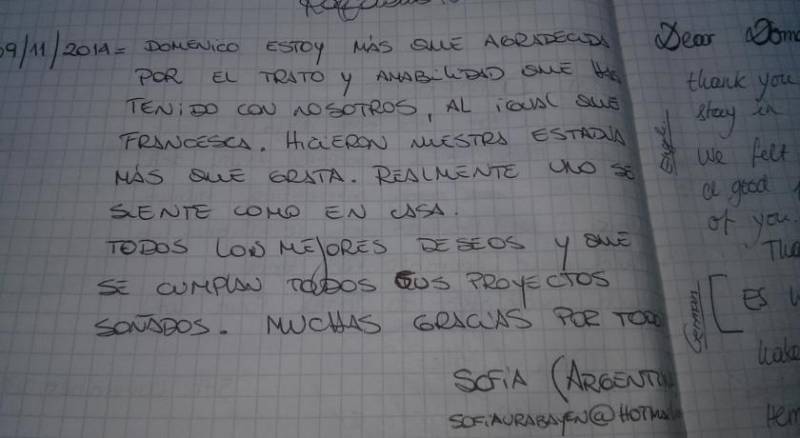 09/11/2014= DOMENICO ESTOY MÁS QUE AGRADECIDA
POR EL TRATO Y AMABILIDAD QUE HAS
TENIDO CON NOSOTROS, AL IGUAL QUE
FRANCESCA. HICIERON NUESTRA ESTADIA
MÁS QUE GRATA. REALMENTE UNO SE
SIENTE COMO EN CASA.
TODOS LOS MEJORES DESEOS Y QUE
SE CUMPLAN TODOS TUS PROYECTOS
SOÑADOS. MUCHAS GRACIAS POR TODO
SOFIA (ARGENTIN
SOFIAURABAYEN@HOTMA
Dear Dom
thank you
stay in
We felt
a good
of you.
Tha
ES